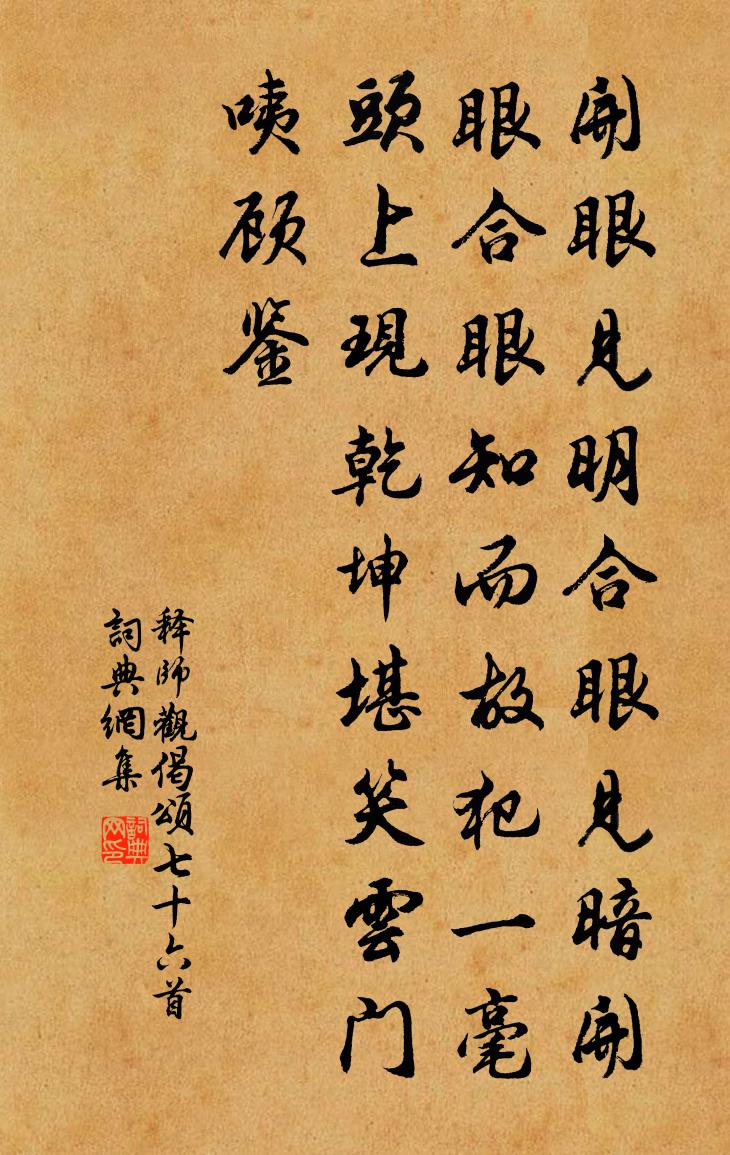 開眼見明合眼見暗開
眼合眼知而故犯一毫
頭上現乾坤堪笑雲门
咦顾鉴
释師觀偈頌七十六首
詞典網集
詞典
网印